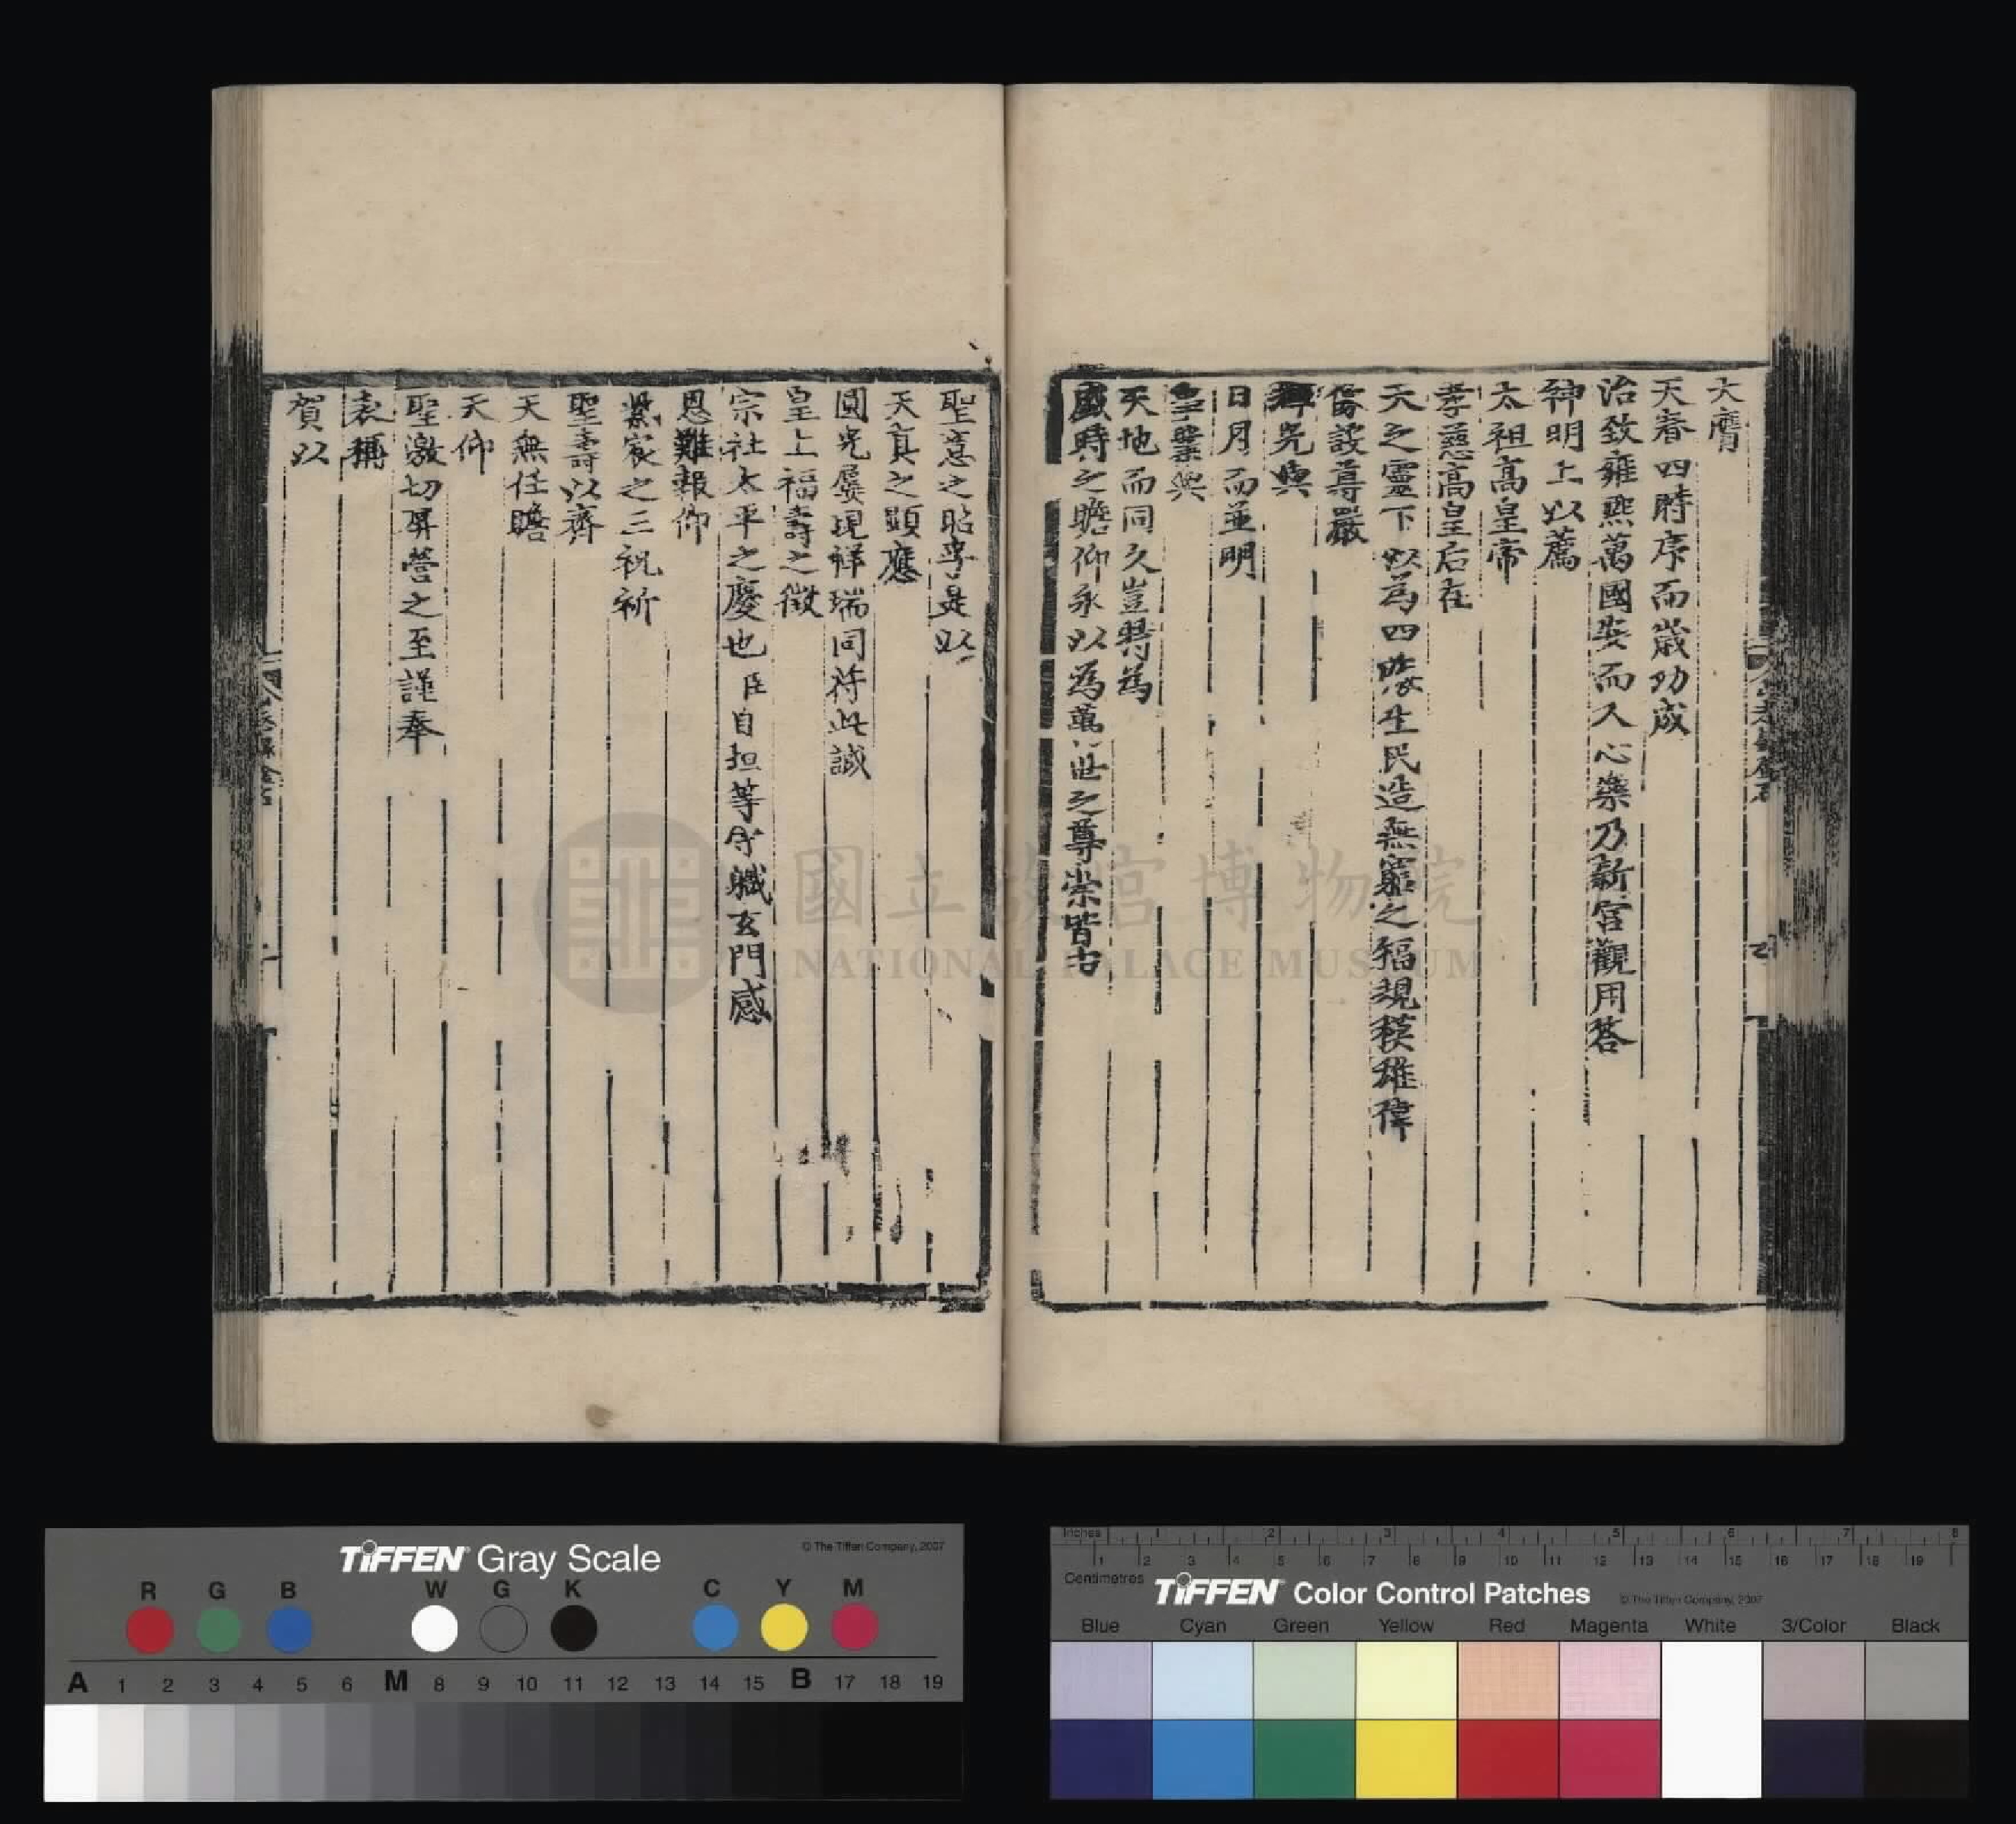 大膺
天眷四時序而歲功成
治致雍熙萬國安而人心樂乃新宮觀用荅
神明上以薦
太祖高皇帝
孝慈高皇后在
天之靈下以為四海生民造無窮之福規模雄偉
像設尊嚴
輝光與
日月而並明
皇業與
天地而同久豈特為
盛時之瞻仰永以為萬世之尊崇皆由
聖意之昭孚是以
天真之顯應
圓光屢現祥瑞同符此誠
皇上福壽之徵
宗社太平之慶也臣自垣等守職玄門感
恩難報仰
之三祝祈
聖壽以齊
天無任瞻
天仰
聖激切屏營之至謹奉
表稱
賀以
國立故宮博物院
NATIONAL PALACE MUSEUM
TIFFEN Gray Scale
© The Tiffen Company, 2007
R G B W G K C Y M
A 1 2 3 4 5 6 M 8 9 10 11 12 13 14 15 B 17 18 19
Inches 1 2 3 4 5 6 7 8
1 2 3 4 5 6 7 8 9 10 11 12 13 14 15 16 17 18 19
Centimetres
TIFFEN Color Control Patches
© The Tiffen Company, 2007
Blue Cyan Green Yellow Red Magenta White 3/Color Black